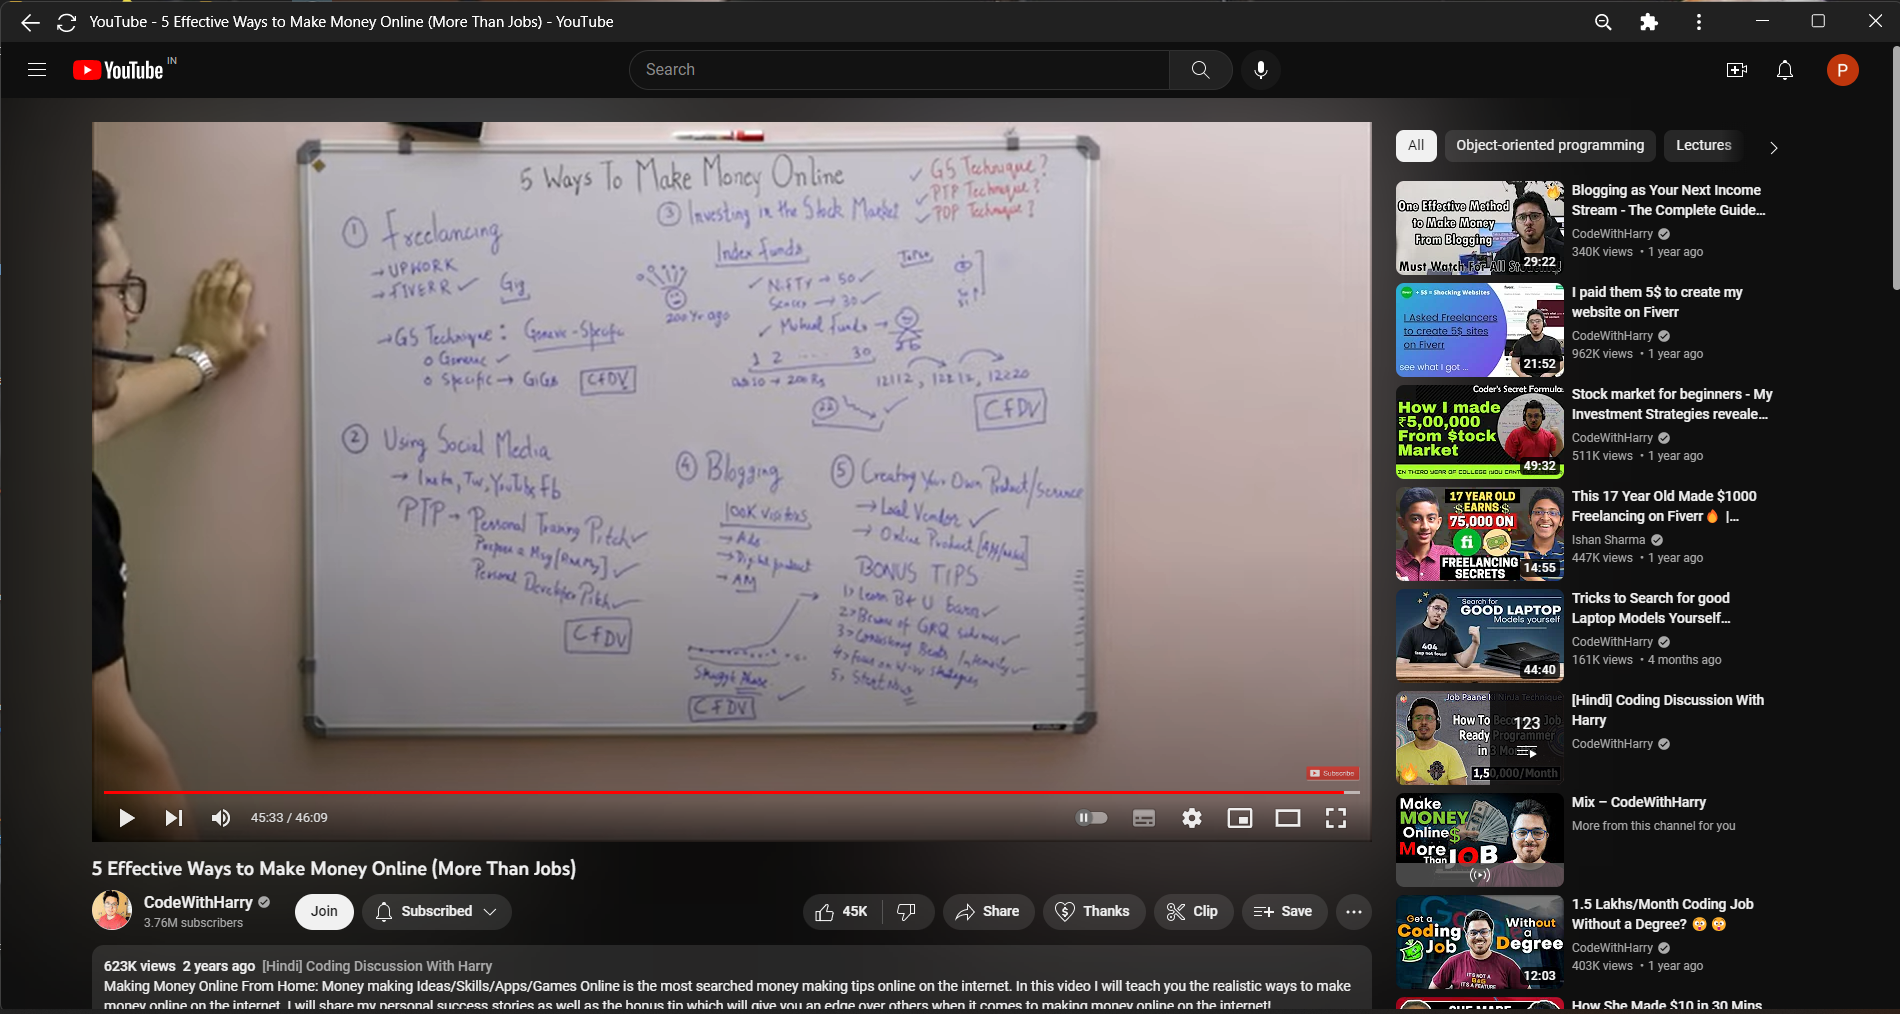 YouTube - 5 Effective Ways to Make Money Online (More Than Jobs) - YouTube
YouTube IN
Search
P
5 Ways To Make Money Online
GS Technique?
PTP Technique?
POP Technique?
① Freelancing
→ UPWORK
→ FIVERR ✓ Gig
→ GS Technique: Generic-Specific
o Generic ✓
o Specific → GIGs CFDV
② Using Social Media
→ Insta, Tw, YouTube, fb
PTP → Personal Training Pitch ✓
Prepare a Msg
Personal Developer Pitch ✓
CFDV
③ Investing in the Stock Market
Index Funds
200 Yr ago
✓ Nifty → 50 ✓
Sensex → 30 ✓
✓ Mutual Funds →
1 2 .... 30
→ 200 Rs
12112, 12212, 12220
22
CFDV
④ Blogging
100K Visitors
→ Ads
→ Digital product
→ AM
Struggle Phase
CFDV
⑤ Creating Your Own Product/Service
→ Local Vendor ✓
→ Online Product
BONUS TIPS
1> Learn B4 U Earn ✓
2> Beware of GRQ schemes ✓
3> Consistency Beats Intensity ✓
4> Focus on W-W Strategies
5> Start Now
Subscribe
45:33 / 46:09
5 Effective Ways to Make Money Online (More Than Jobs)
CodeWithHarry
3.76M subscribers
Join
Subscribed
45K
Share
Thanks
Clip
Save
623K views 2 years ago [Hindi] Coding Discussion With Harry
Making Money Online From Home: Money making Ideas/Skills/Apps/Games Online is the most searched money making tips online on the internet. In this video I will teach you the realistic ways to make
money online on the internet. I will share my personal success stories as well as the bonus tip which will give you an edge over others when it comes to making money online on the internet!
All
Object-oriented programming
Lectures
One Effective Method
to Make Money
From Blogging
Must Watch For All
29:22
Blogging as Your Next Income
Stream - The Complete Guide...
CodeWithHarry
340K views • 1 year ago
+ 5$ = Shocking Websites
I Asked Freelancers
to create 5$ sites
on Fiverr
see what I got ...
21:52
I paid them 5$ to create my
website on Fiverr
CodeWithHarry
962K views • 1 year ago
Coder's Secret Formula
How I made
₹5,00,000
From $tock
Market
IN THIRD YEAR OF COLLEGE (YOU CAN
49:32
Stock market for beginners - My
Investment Strategies reveale...
CodeWithHarry
511K views • 1 year ago
17 YEAR OLD
EARNS
75,000 ON
fi
FREELANCING
SECRETS
14:55
This 17 Year Old Made $1000
Freelancing on Fiverr🔥 |...
Ishan Sharma
447K views • 1 year ago
Search for
GOOD LAPTOP
Models yourself
404
44:40
Tricks to Search for good
Laptop Models Yourself...
CodeWithHarry
161K views • 4 months ago
Job Paane Ninja Technique
How To Become Job
Ready Programmer
in 3 Mo
1,50,000/Month
123
[Hindi] Coding Discussion With
Harry
CodeWithHarry
Make
MONEY
Online$
More
Than JOB
Mix – CodeWithHarry
More from this channel for you
Get a
Coding
Job
Without
a
Degree
IT'S NOT A BUG
IT'S A FEATURE
12:03
1.5 Lakhs/Month Coding Job
Without a Degree? 🤯 🤯
CodeWithHarry
403K views • 1 year ago
SHE MADE
How She Made $10 in 30 Mins